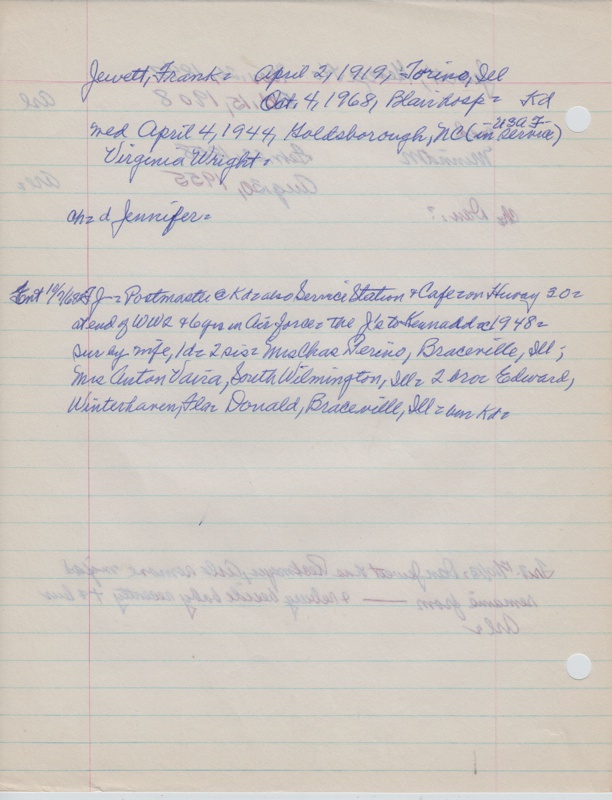 Jewett, Frank = April 2, 1919, Torino, Ill
Oct. 4, 1968, Blairhosp = Kd
USAF
med April 4, 1944, Goldsborough, NC (in Service)
Virginia Wright =
ch = d Jennifer =
Ent 10/7/68 = FJ = Postmaster @ Kd = also Service Station & Cafe on Huway 30 =
at end of WW2 & 6 yrs in Air force = the J's to Kennadd 1948 =
sur by wife, 1 d = 2 sis = Mrs Chas Perino, Braceville, Ill;
Mrs Anton Vaira, South Wilmington, Ill = 2 bro = Edward,
Winterhaven, Fla = Donald, Braceville, Ill = bur Kd =